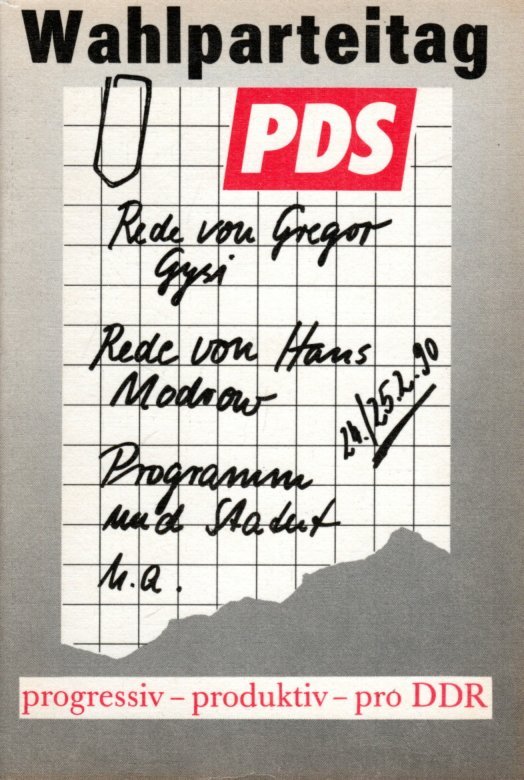 Wahlparteitag
PDS
Rede von Gregor
Gysi
Rede von Hans
Modrow
24./25.2.90
Programm
und Statut
u.a.
progressiv – produktiv – pro DDR